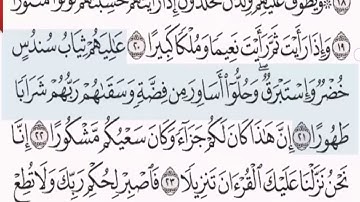 ۞ وَيَطُوفُ عَلَيْهِمْ وِلْدَٰنٌ مُّخَلَّدُونَ إِذَا رَأَيْتَهُمْ حَسِبْتَهُمْ لُؤْلُؤًا مَّنثُورًا
﴿١٩﴾ وَإِذَا رَأَيْتَ ثَمَّ رَأَيْتَ نَعِيمًا وَمُلْكًا كَبِيرًا ﴿٢٠﴾ عَٰلِيَهُمْ ثِيَابُ سُندُسٍ
خُضْرٌ وَإِسْتَبْرَقٌ ۖ وَحُلُّوٓا۟ أَسَاوِرَ مِن فِضَّةٍ وَسَقَىٰهُمْ رَبُّهُمْ شَرَابًا
طَهُورًا ﴿٢١﴾ إِنَّ هَٰذَا كَانَ لَكُمْ جَزَآءً وَكَانَ سَعْيُكُم مَّشْكُورًا ﴿٢٢﴾ إِنَّا
نَحْنُ نَزَّلْنَا عَلَيْكَ ٱلْقُرْءَانَ تَنزِيلًا ﴿٢٣﴾ فَٱصْبِرْ لِحُكْمِ رَبِّكَ وَلَا تُطِعْ